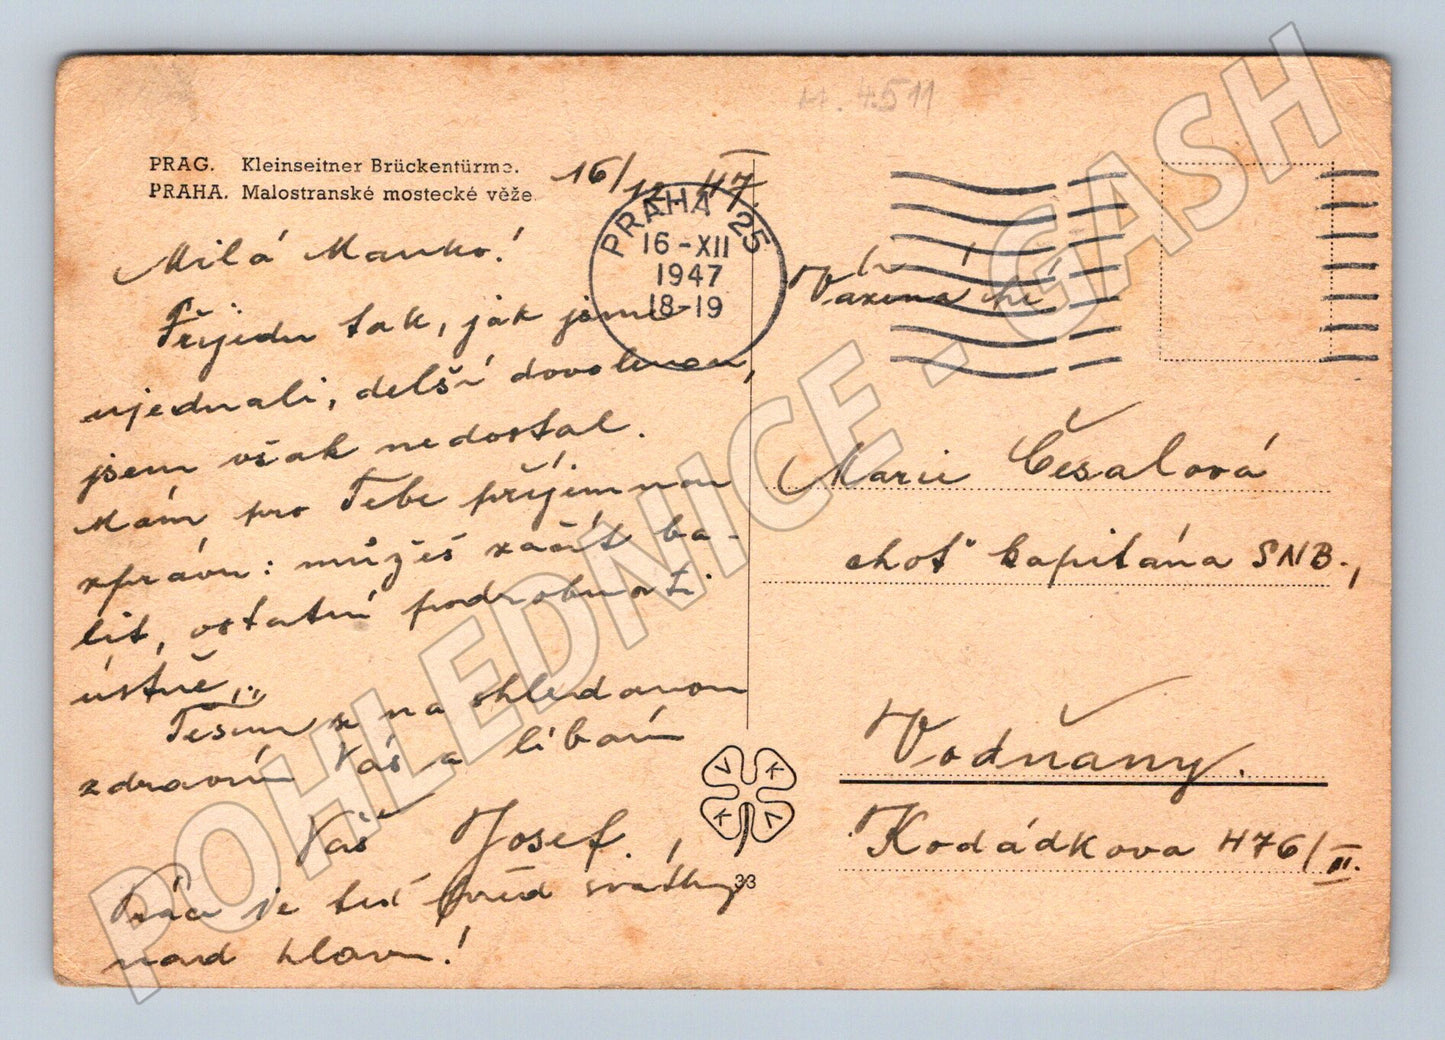 H. 4511
PRAG. Kleinseitner Brückentürme.
PRAHA. Malostranské mostecké věže.
16/12. 47.
PRAHA 25
16-XII
1947
18-19
Milá Manko!
Přijedu tak, jak jsme
ujednali, delší dovolenou,
jsem však nedostal.
Mám pro Tebe příjemnou
zprávu: můžeš začít ba-
lit, ostatní podrobnosti
ústně.
Těším se na shledanou
zdravím Vás a líbám
Váš Josef.
Práce je teď před svátky
nad hlavu!
Vážená pí
Marie Česalová
choť kapitána SNB.,
Vodňany.
Kodádkova 476/III.
VK
KV
33
POHLEDNICE - GASH